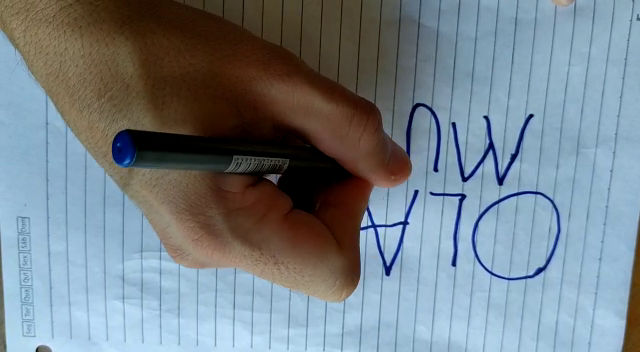 OLA
MU
Seg Ter Qua Qui Sex Sáb Dom